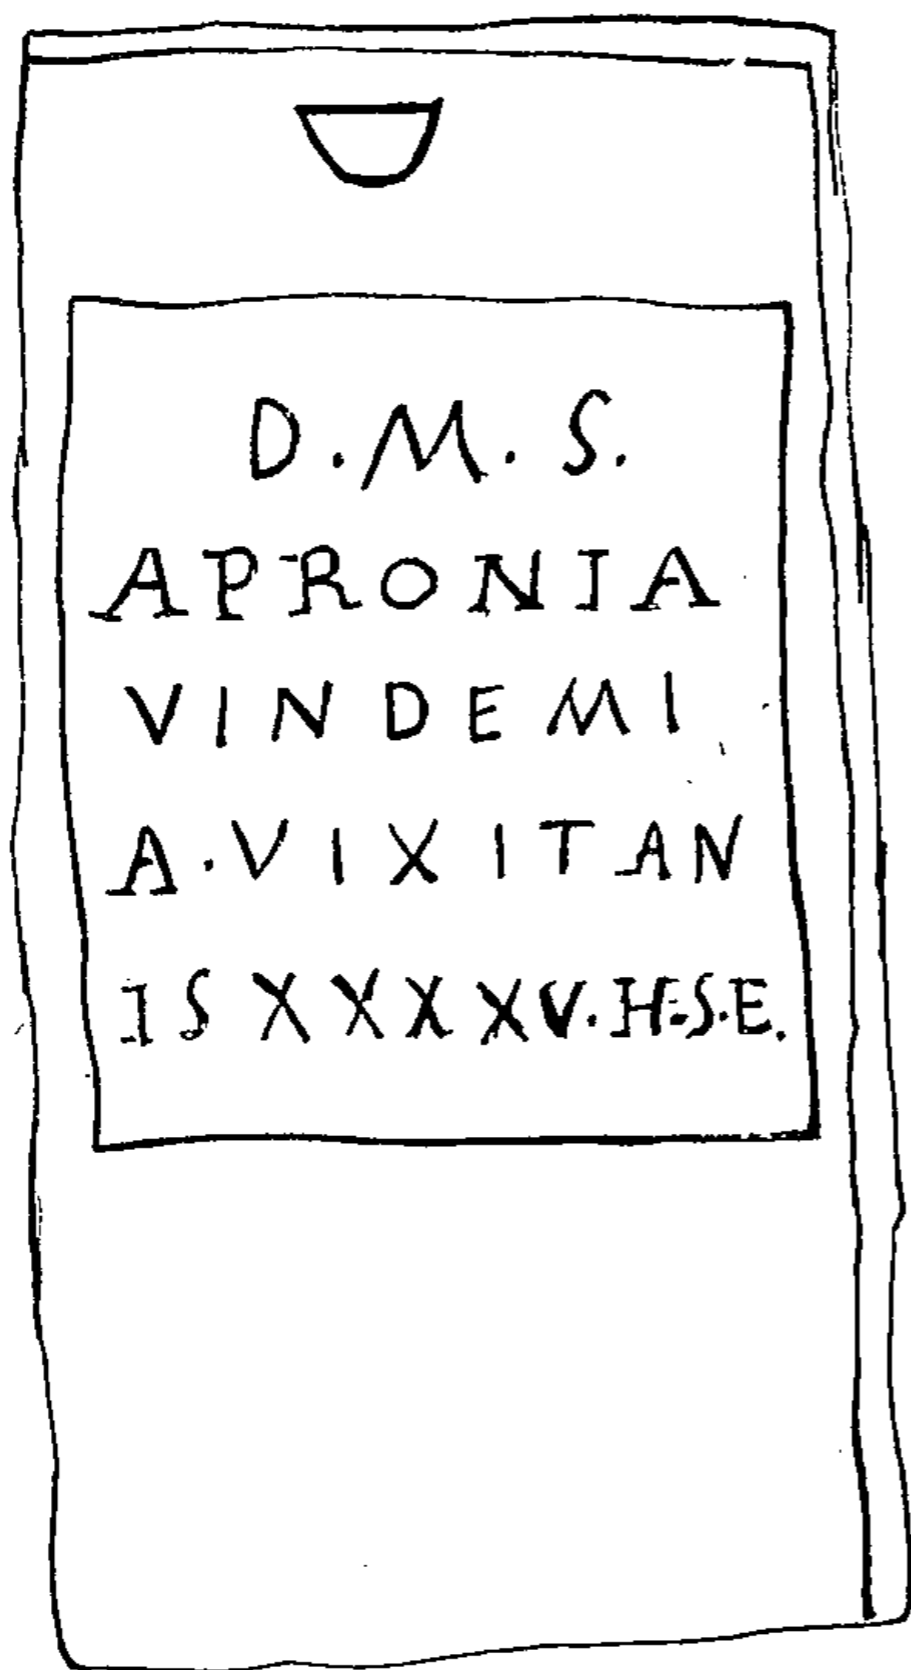 D.M.S.
APRONIA
VINDEMI
A.VIXITAN
ISXXXXV.H.S.E.